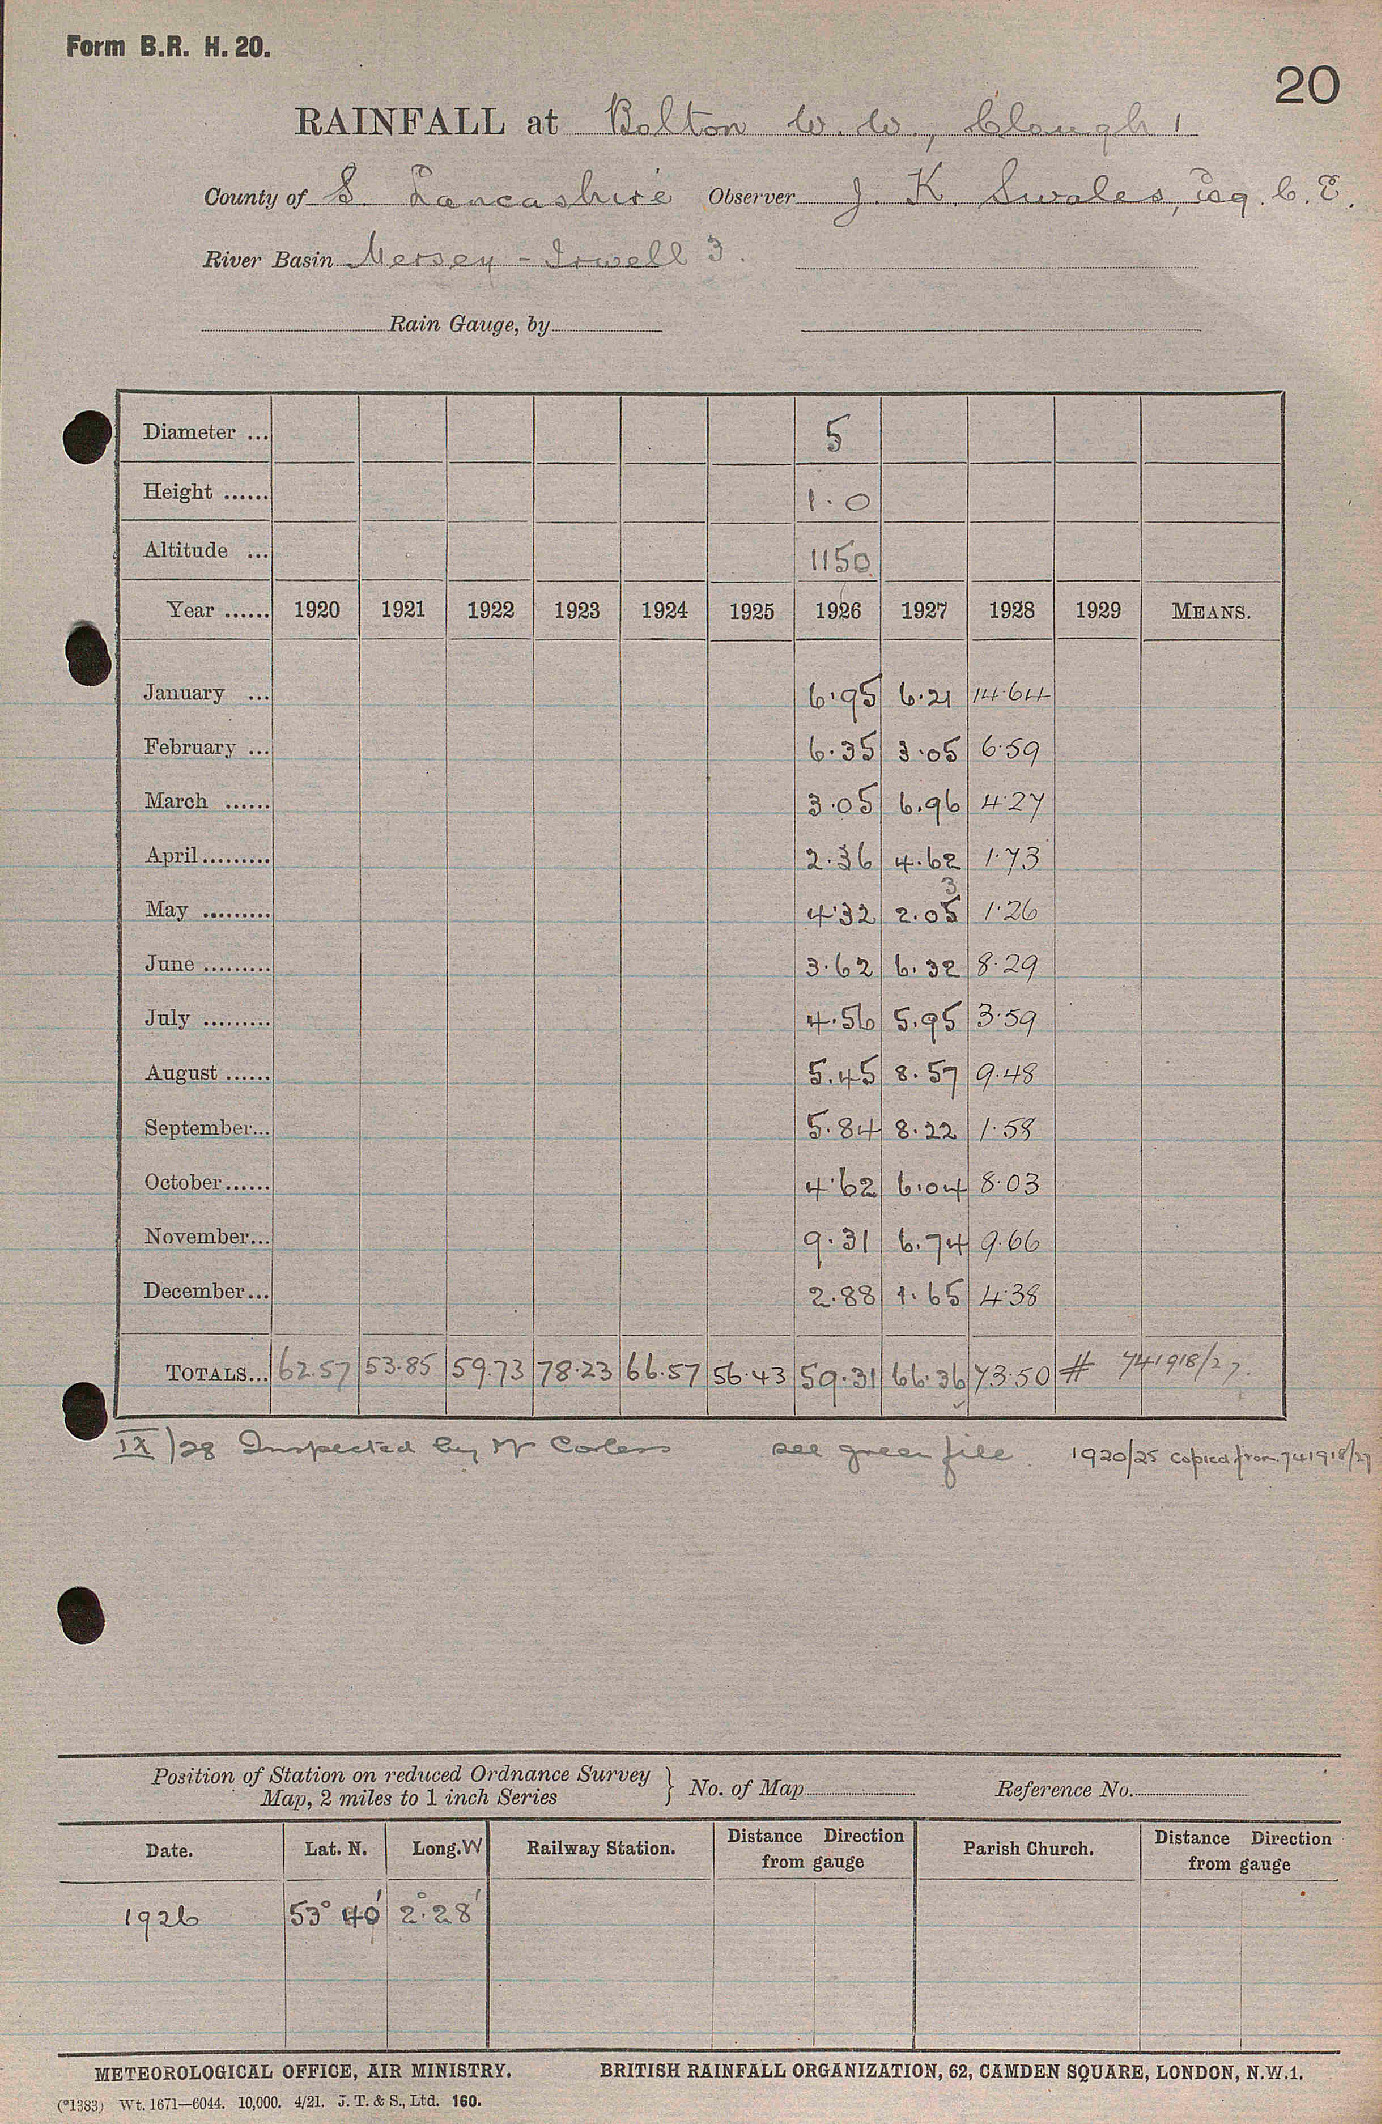 Form B.R. H. 20.
20
RAINFALL at Bolton W. W., Clough 1
County of S. Lancashire Observer J. K. Swales, Esq. C. E.
River Basin Mersey - Irwell 3.
Rain Gauge, by
Diameter ... 5
Height ...... 1.0
Altitude ... 1150
Year ...... 1920 1921 1922 1923 1924 1925 1926 1927 1928 1929 MEANS.
January ... 6.95 6.21 14.64
February ... 6.35 3.05 6.59
March ...... 3.05 6.96 4.27
April......... 2.36 4.62 1.73
3
May ......... 4.32 2.05 1.26
June ......... 3.62 6.32 8.29
July ......... 4.56 5.95 3.59
August ...... 5.45 8.57 9.48
September... 5.84 8.22 1.58
October...... 4.62 6.04 8.03
November... 9.31 6.74 9.66
December... 2.88 1.65 4.38
TOTALS... 62.57 53.85 59.73 78.23 66.57 56.43 59.31 66.36 73.50 # 741918/27
IX/28 Inspected by Mr Corless see green file. 1920/25 copied from 741918/27
Position of Station on reduced Ordnance Survey
Map, 2 miles to 1 inch Series } No. of Map Reference No.
Date. Lat. N. Long. W Railway Station. Distance Direction from gauge Parish Church. Distance Direction from gauge
1926 53° 40' 2° 28'
METEOROLOGICAL OFFICE, AIR MINISTRY. BRITISH RAINFALL ORGANIZATION, 62, CAMDEN SQUARE, LONDON, N.W.1.
(*1383) Wt. 1671—6044. 10,000. 4/21. J. T. & S., Ltd. 160.